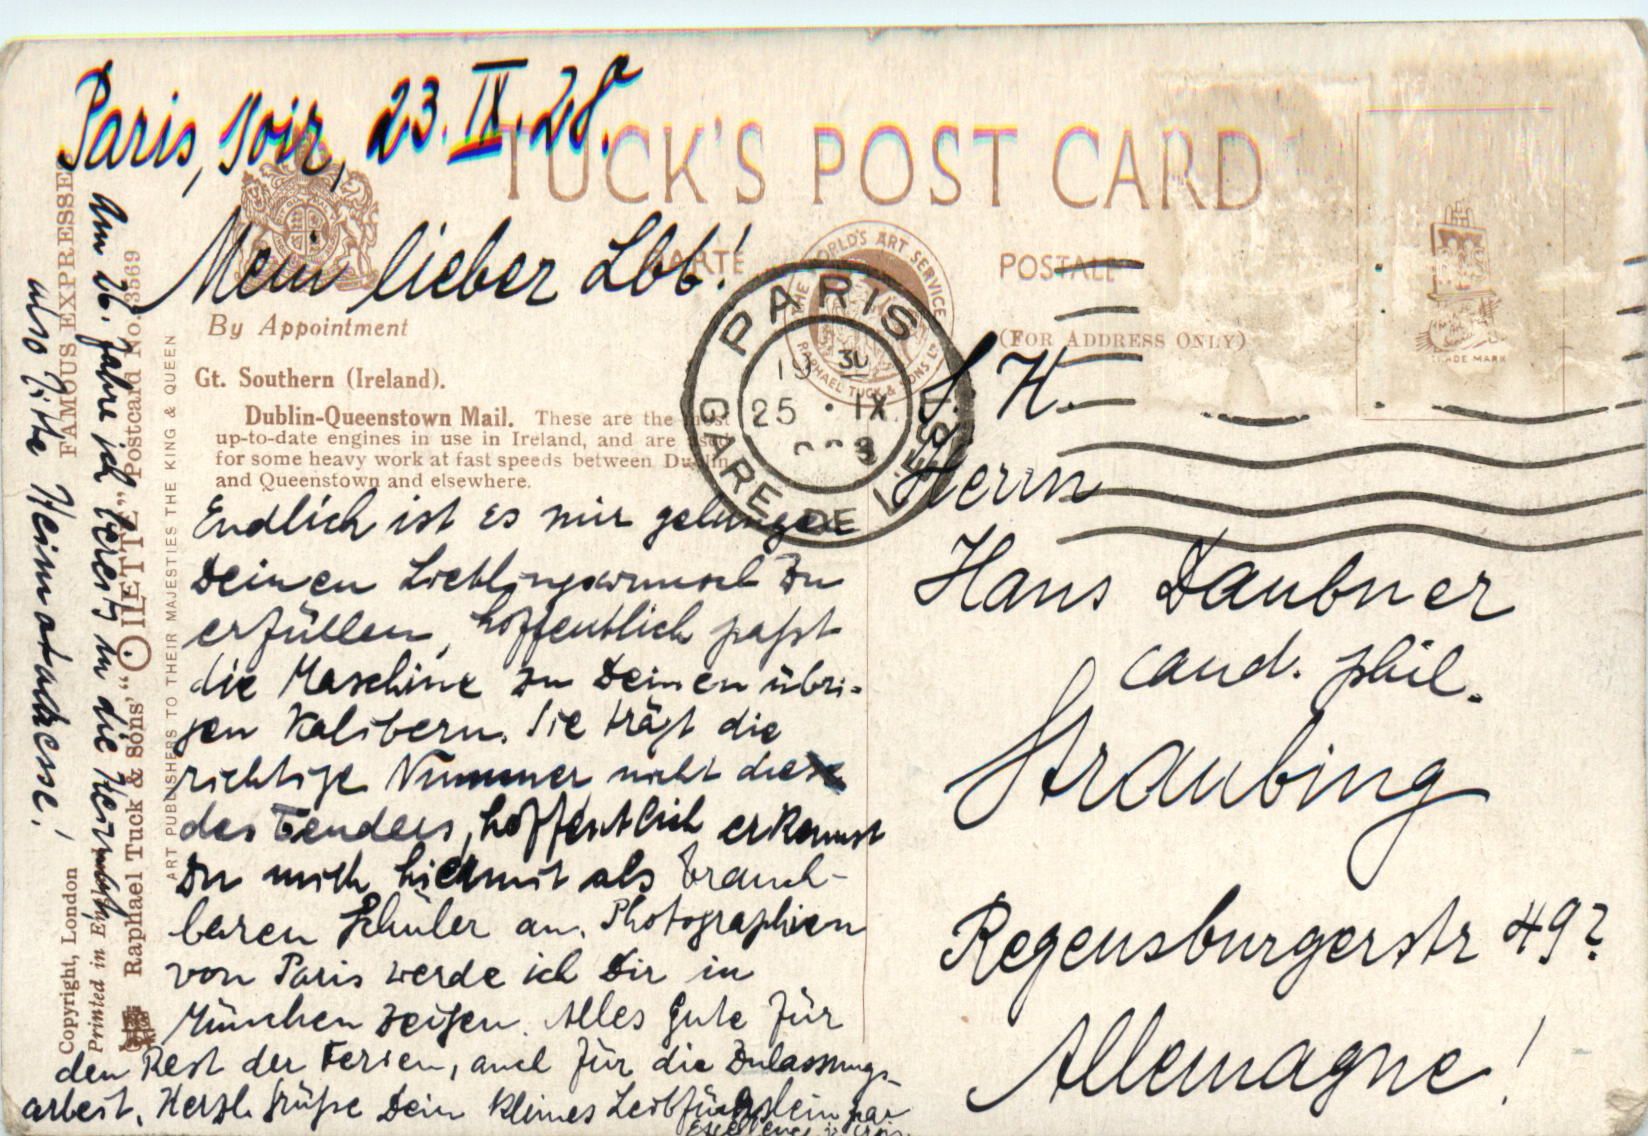 Paris, soir, 23. IX. 28.
TUCK'S POST CARD
CARTE POSTALE
(FOR ADDRESS ONLY)
By Appointment
THE WORLD'S ART SERVICE
RAPHAEL TUCK & SONS LD
TRADE MARK
PARIS
GARE DE L'EST
19 30
25 · IX
Gt. Southern (Ireland).
Dublin-Queenstown Mail. These are the most
up-to-date engines in use in Ireland, and are used
for some heavy work at fast speeds between Dublin
and Queenstown and elsewhere.
Mein lieber Lbb!
Endlich ist es mir gelungen
Deinen Lieblingswunsch zu
erfüllen, hoffentlich paßt
die Maschine zu Deinen übri-
gen Kalibern. Sie trägt die
richtige Nummer nicht die
des Tenders, hoffentlich erkennst
Du mich hiermit als brauch-
baren Schüler an. Photographien
von Paris werde ich Dir in
München zeigen. Alles Gute für
den Rest der Ferien, auch für die Zulassungs-
arbeit. Herzl. Grüße Dein kleines par
Am 26. fahre ich bereits in die Heimat,
also bitte Heimatadresse!
S. H.
Herrn
Hans Daubner
cand. phil.
Straubing
Regensburgerstr 49?
Allemagne!
FAMOUS EXPRESSES
Raphael Tuck & Sons' "OILETTE" Postcard No. 3569
ART PUBLISHERS TO THEIR MAJESTIES THE KING & QUEEN
Copyright, London
Printed in